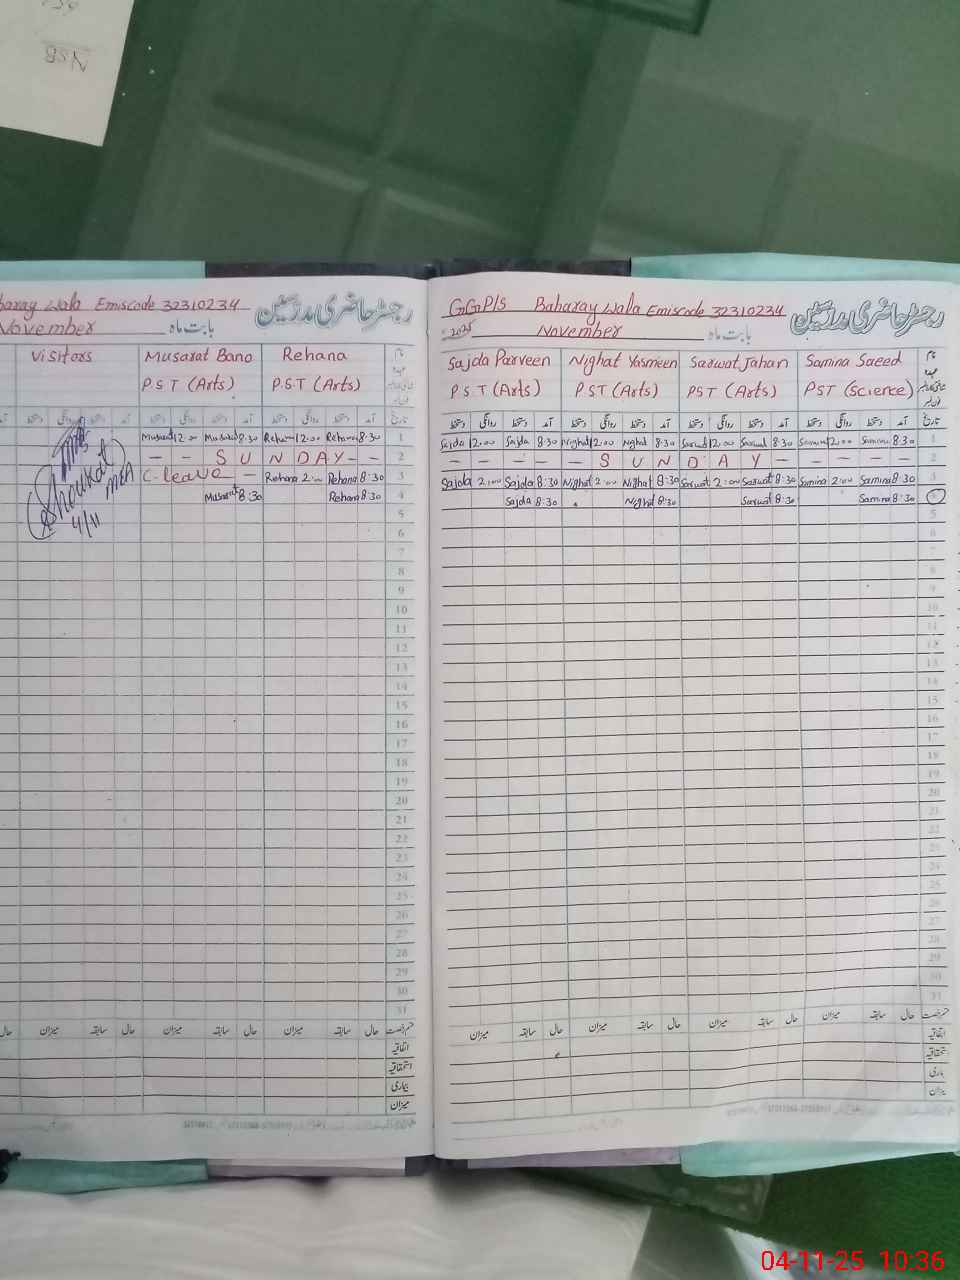 NSB
Wala Emiscode 32310234
رجسٹر حاضری مدرسین
November
بابت ماہ
Visitors
Musarat Bano
Rehana
نام
P.S.T (Arts)
P.S.T (Arts)
عہدہ
دستخط روانگی دستخط آمد دستخط روانگی دستخط آمد تاریخ
Musarat 12:00 Musarat 8:30 Rehana 12:00 Rehana 8:30 1
— — S U N D A Y — — 2
C-leave — Rehana 2:00 Rehana 8:30 3
Musarat 8:30 Rehana 8:30 4
Shoukat
MEA
4/11
5
6
7
8
9
10
11
12
13
14
15
16
17
18
19
20
21
22
23
24
25
26
27
28
29
30
31
حال میزان سابقہ حال میزان سابقہ حال میزان سابقہ حال قسم رخصت
اتفاقیہ
استحقاقیہ
بیماری
میزان
GGPS Baharay Walla Emiscode 32310234
رجسٹر حاضری مدرسین
2025
November
بابت ماہ
Sajda Parveen
Nighat Yasmeen
Sarwat Jahan
Samina Saeed
نام
P.S.T (Arts)
PST (Arts)
PST (Arts)
PST (Science)
عہدہ
دستخط روانگی دستخط آمد دستخط روانگی دستخط آمد دستخط روانگی دستخط آمد دستخط روانگی دستخط آمد تاریخ
Sajda 12:00 Sajda 8:30 Nighat 12:00 Nighat 8:30 Sarwat 12:00 Sarwat 8:30 Samina 12:00 Samina 8:30 1
— — — — — S U N D A Y — — — — — 2
Sajda 2:00 Sajda 8:30 Nighat 2:00 Nighat 8:30 Sarwat 2:00 Sarwat 8:30 Samina 2:00 Samina 8:30 3
Sajda 8:30 Nighat 8:30 Sarwat 8:30 Samina 8:30 4
5
6
7
8
9
10
11
12
13
14
15
16
17
18
19
20
21
22
23
24
25
26
27
28
29
30
31
میزان سابقہ حال میزان سابقہ حال میزان سابقہ حال میزان سابقہ حال قسم رخصت
اتفاقیہ
04-11-25 10:36